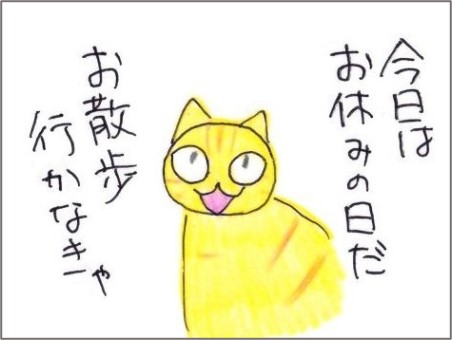 今日は
お休みの日だ
お散歩
行かなきゃ